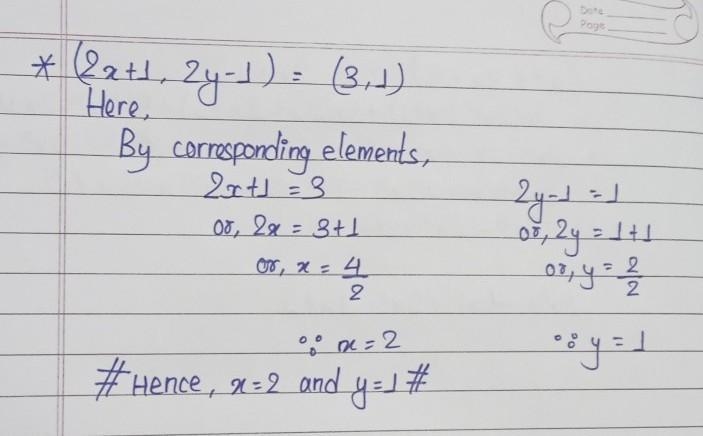 Date
Page
* (2x+1, 2y-1) = (3,1)
Here,
By corresponding elements,
2x+1 = 3
2y-1 = 1
or, 2x = 3+1
or, 2y = 1+1
or, x = 4/2
or, y = 2/2
∴ x = 2
∴ y = 1
# Hence, x=2 and y=1 #